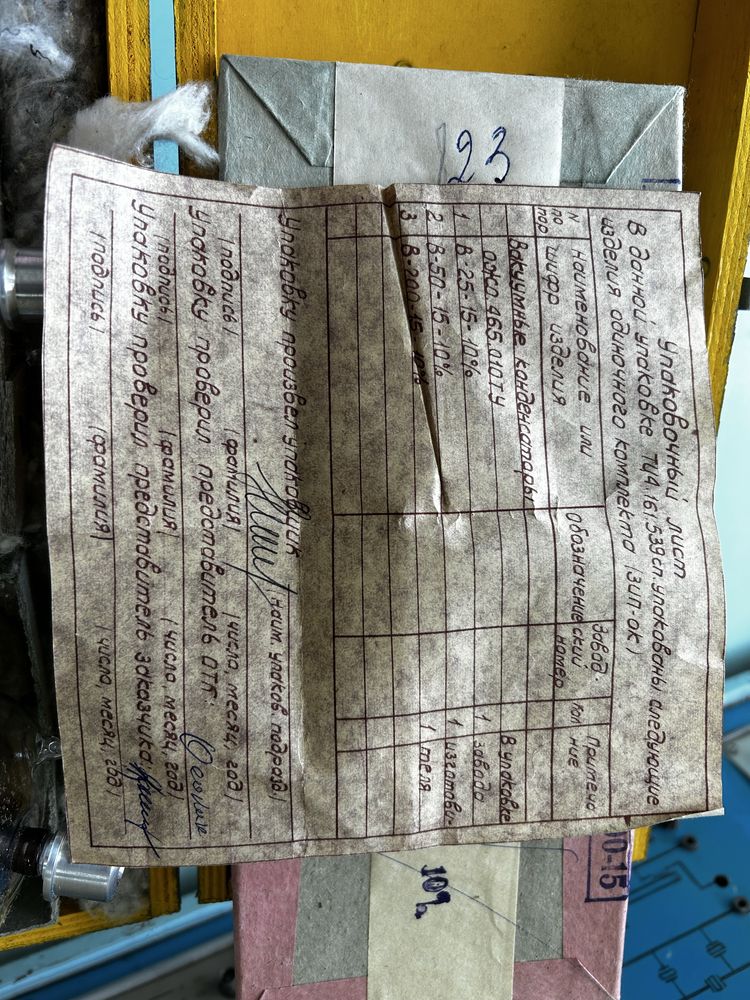 Упаковочный лист
В данной упаковке 7У4.161.539сп. упакованы следующие
изделия одиночного комплекта (ЗИП-ОК)
N по пор
наименование или шифр изделия
обозначение
Завод-ский номер
Кол
Примечание
Вакуумные конденсаторы
В упаковке
ОЖО.465.010ТУ
завода
1 В-25-15-10% 1
изготови-
2 В-50-15-10% 1
теля
3 В-200-15-10% 1
Упаковку произвел упаковщик
наим. упаков. подразд)
(подпись) (фамилия) (число, месяц, год)
Упаковку проверил представитель ОТК.
(подпись) (фамилия) (число, месяц, год)
Упаковку проверил представитель заказчика
(подпись) (фамилия) (число, месяц, год)
123
10%
0-15